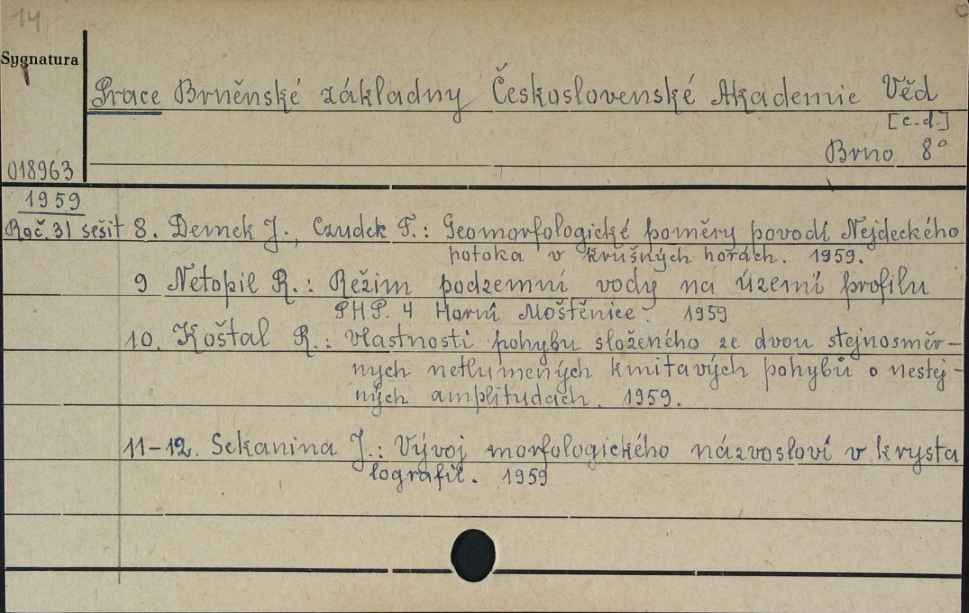 14
Sygnatura
Prace Brněnské základny Československé Akademie Věd
[c.d.]
Brno 8°
018963
1959
Roč. 31 sešit 8. Demek J., Czudek T.: Geomorfologické poměry povodí Nejdeckého
potoka v Krušných horách. 1959.
9 Netopil R.: Režim podzemní vody na území profilu
PHP. 4 Horní Moštěnice. 1959
10. Koštal R.: Vlastnosti pohybu složeného ze dvou stejnosměr-
ných netlumených kmitavých pohybů o nestej-
ných amplitudách. 1959.
11-12. Sekanina J.: Vývoj morfologického názvosloví v krysta
lografii. 1959